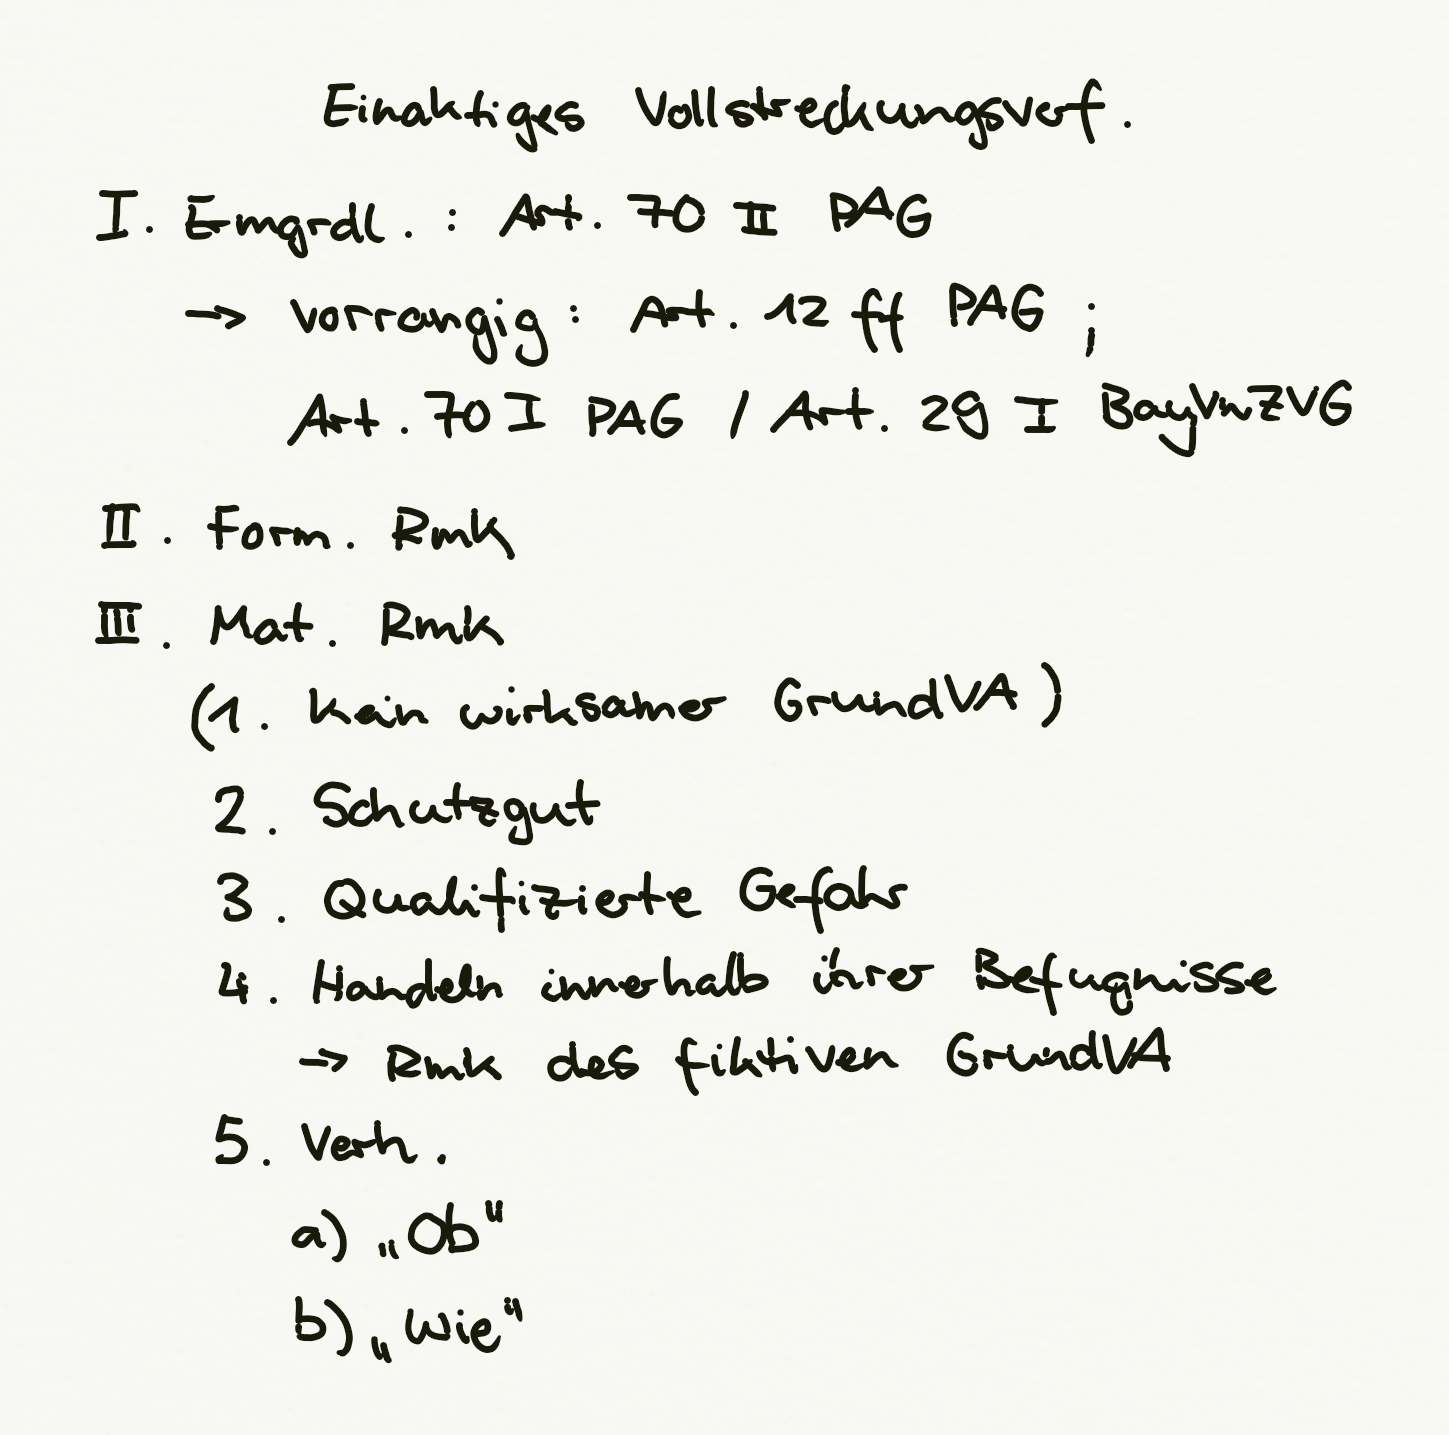 Einaktiges Vollstreckungsverf.
I. Ermgrdl. : Art. 70 II PAG
→ vorrangig : Art. 12 ff PAG ;
Art. 70 I PAG / Art. 29 I BayVwZVG
II. Form. Rmk
III. Mat. Rmk
(1. Kein wirksamer GrundVA)
2. Schutzgut
3. Qualifizierte Gefahr
4. Handeln innerhalb ihrer Befugnisse
→ Rmk des fiktiven GrundVA
5. Verh.
a) „Ob“
b) „Wie“